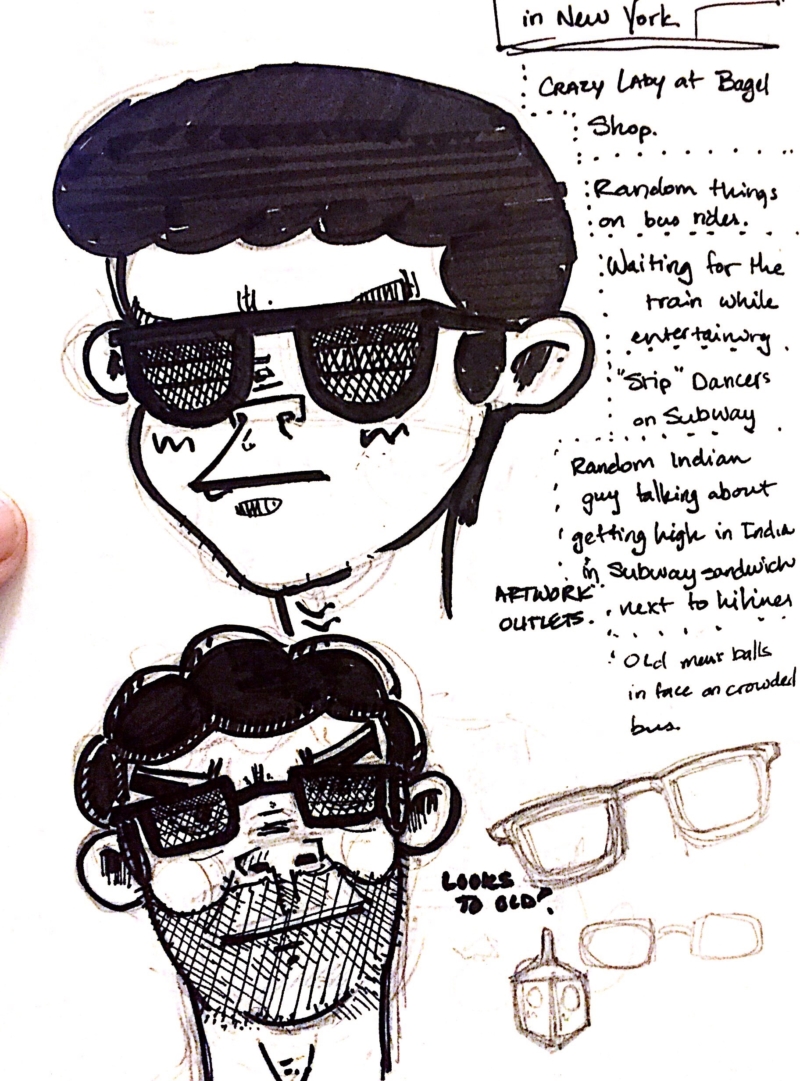 in New York
Crazy Lady at Bagel
Shop.
Random things
on bus rides.
Waiting for the
train while
entertaining
"Strip" Dancers
on Subway
Random Indian
guy talking about
getting high in India
in Subway sandwich
next to
ARTWORK
OUTLETS.
Old mens balls
in face on crowded
bus.
LOOKS
TO OLD!